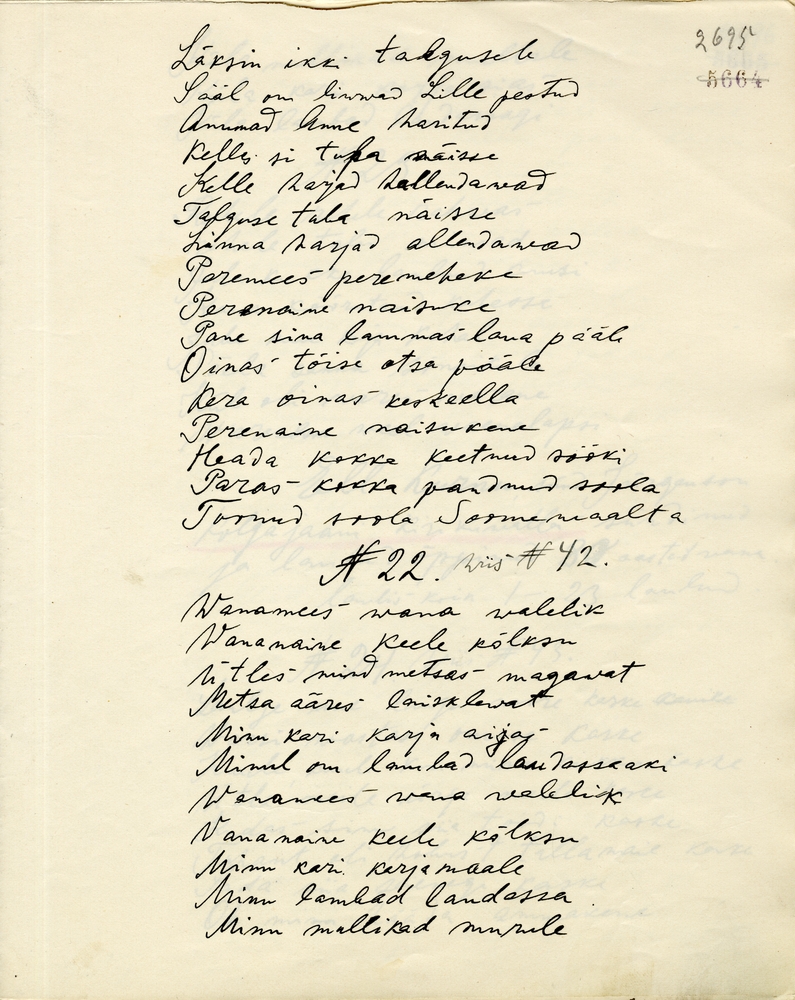 2695
5664
Läksin ikki talgusele
Sääl om linwad Lille pestud
Annmad Anne haritud
Kelle si tuba näisse
Kelle harjad hallendawad
Talguse tuba näisse
Linna harjad allendawad
Peremees peremeheke
Perenaine naisuke
Pane sina lammas laua pääle
Oinas tõise otsa pääle
Kera oinas keskeella
Perenaine naisukene
Heada kokka keetnud sööki
Paras kokka pandnud soola
Toonud soola Soomemaalta
N 22. wiis # 42.
Wanamees wana walelik
Wananaine keele kõlksu
Ütles mind metsas magawat
Metsa ääres laisklewat
Minu kari karja aijas
Minul om lambad laudassaaki
Wanamees wana walelik
Vananaine keele kõlksu
Minu kari karjamaale
Minu lambad laudassa
Minu mullikad murule